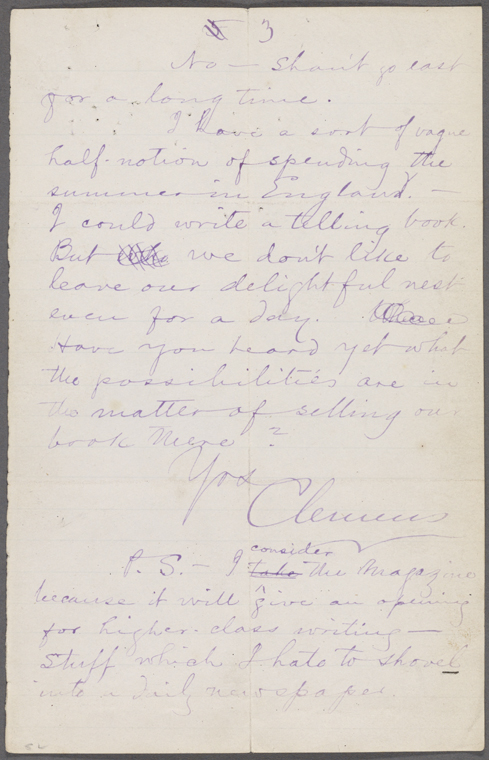 3
No — Shan't go east
for a long time.
I have a sort of vague
half-notion of spending the
summer in England. —
I could write a telling book.
But we don't like to
leave our delightful nest
even for a day.
Have you heard yet what
the possibilities are in
the matter of selling our
book there?
Yrs
Clemens
consider
P. S. — I take the Magazine
because it will give an opening
for higher-class writing—
stuff which I hate to shovel
into a daily newspaper.